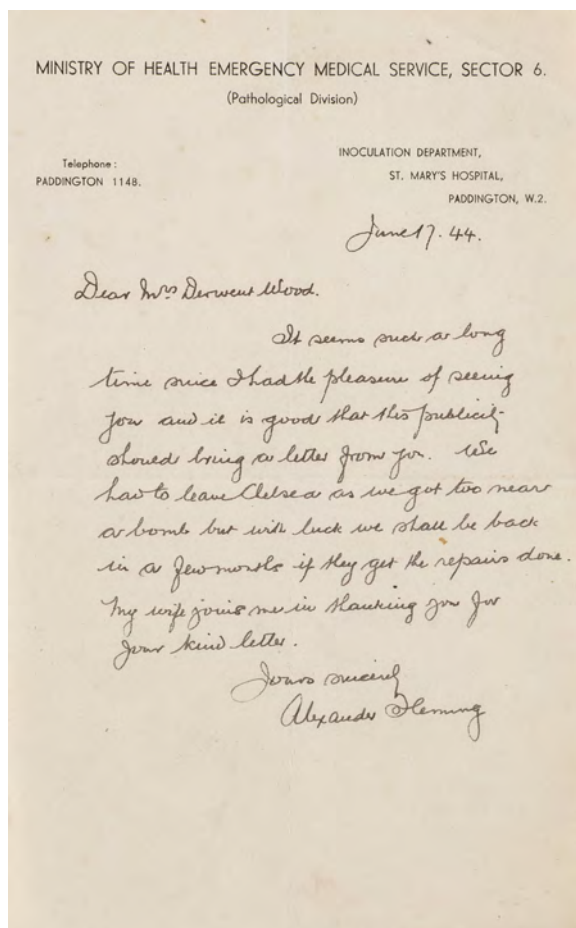 MINISTRY OF HEALTH EMERGENCY MEDICAL SERVICE, SECTOR 6.
(Pathological Division)
Telephone:
PADDINGTON 1148.
INOCULATION DEPARTMENT,
ST. MARY'S HOSPITAL,
PADDINGTON, W.2.
June 17. 44.
Dear Mrs Derwent Wood.
It seems such a long
time since I had the pleasure of seeing
you and it is good that this publicity
should bring a letter from you. We
had to leave Chelsea as we got too near
a bomb but with luck we shall be back
in a few months if they get the repairs done.
My wife joins me in thanking you for
your kind letter.
Yours sincerely
Alexander Fleming